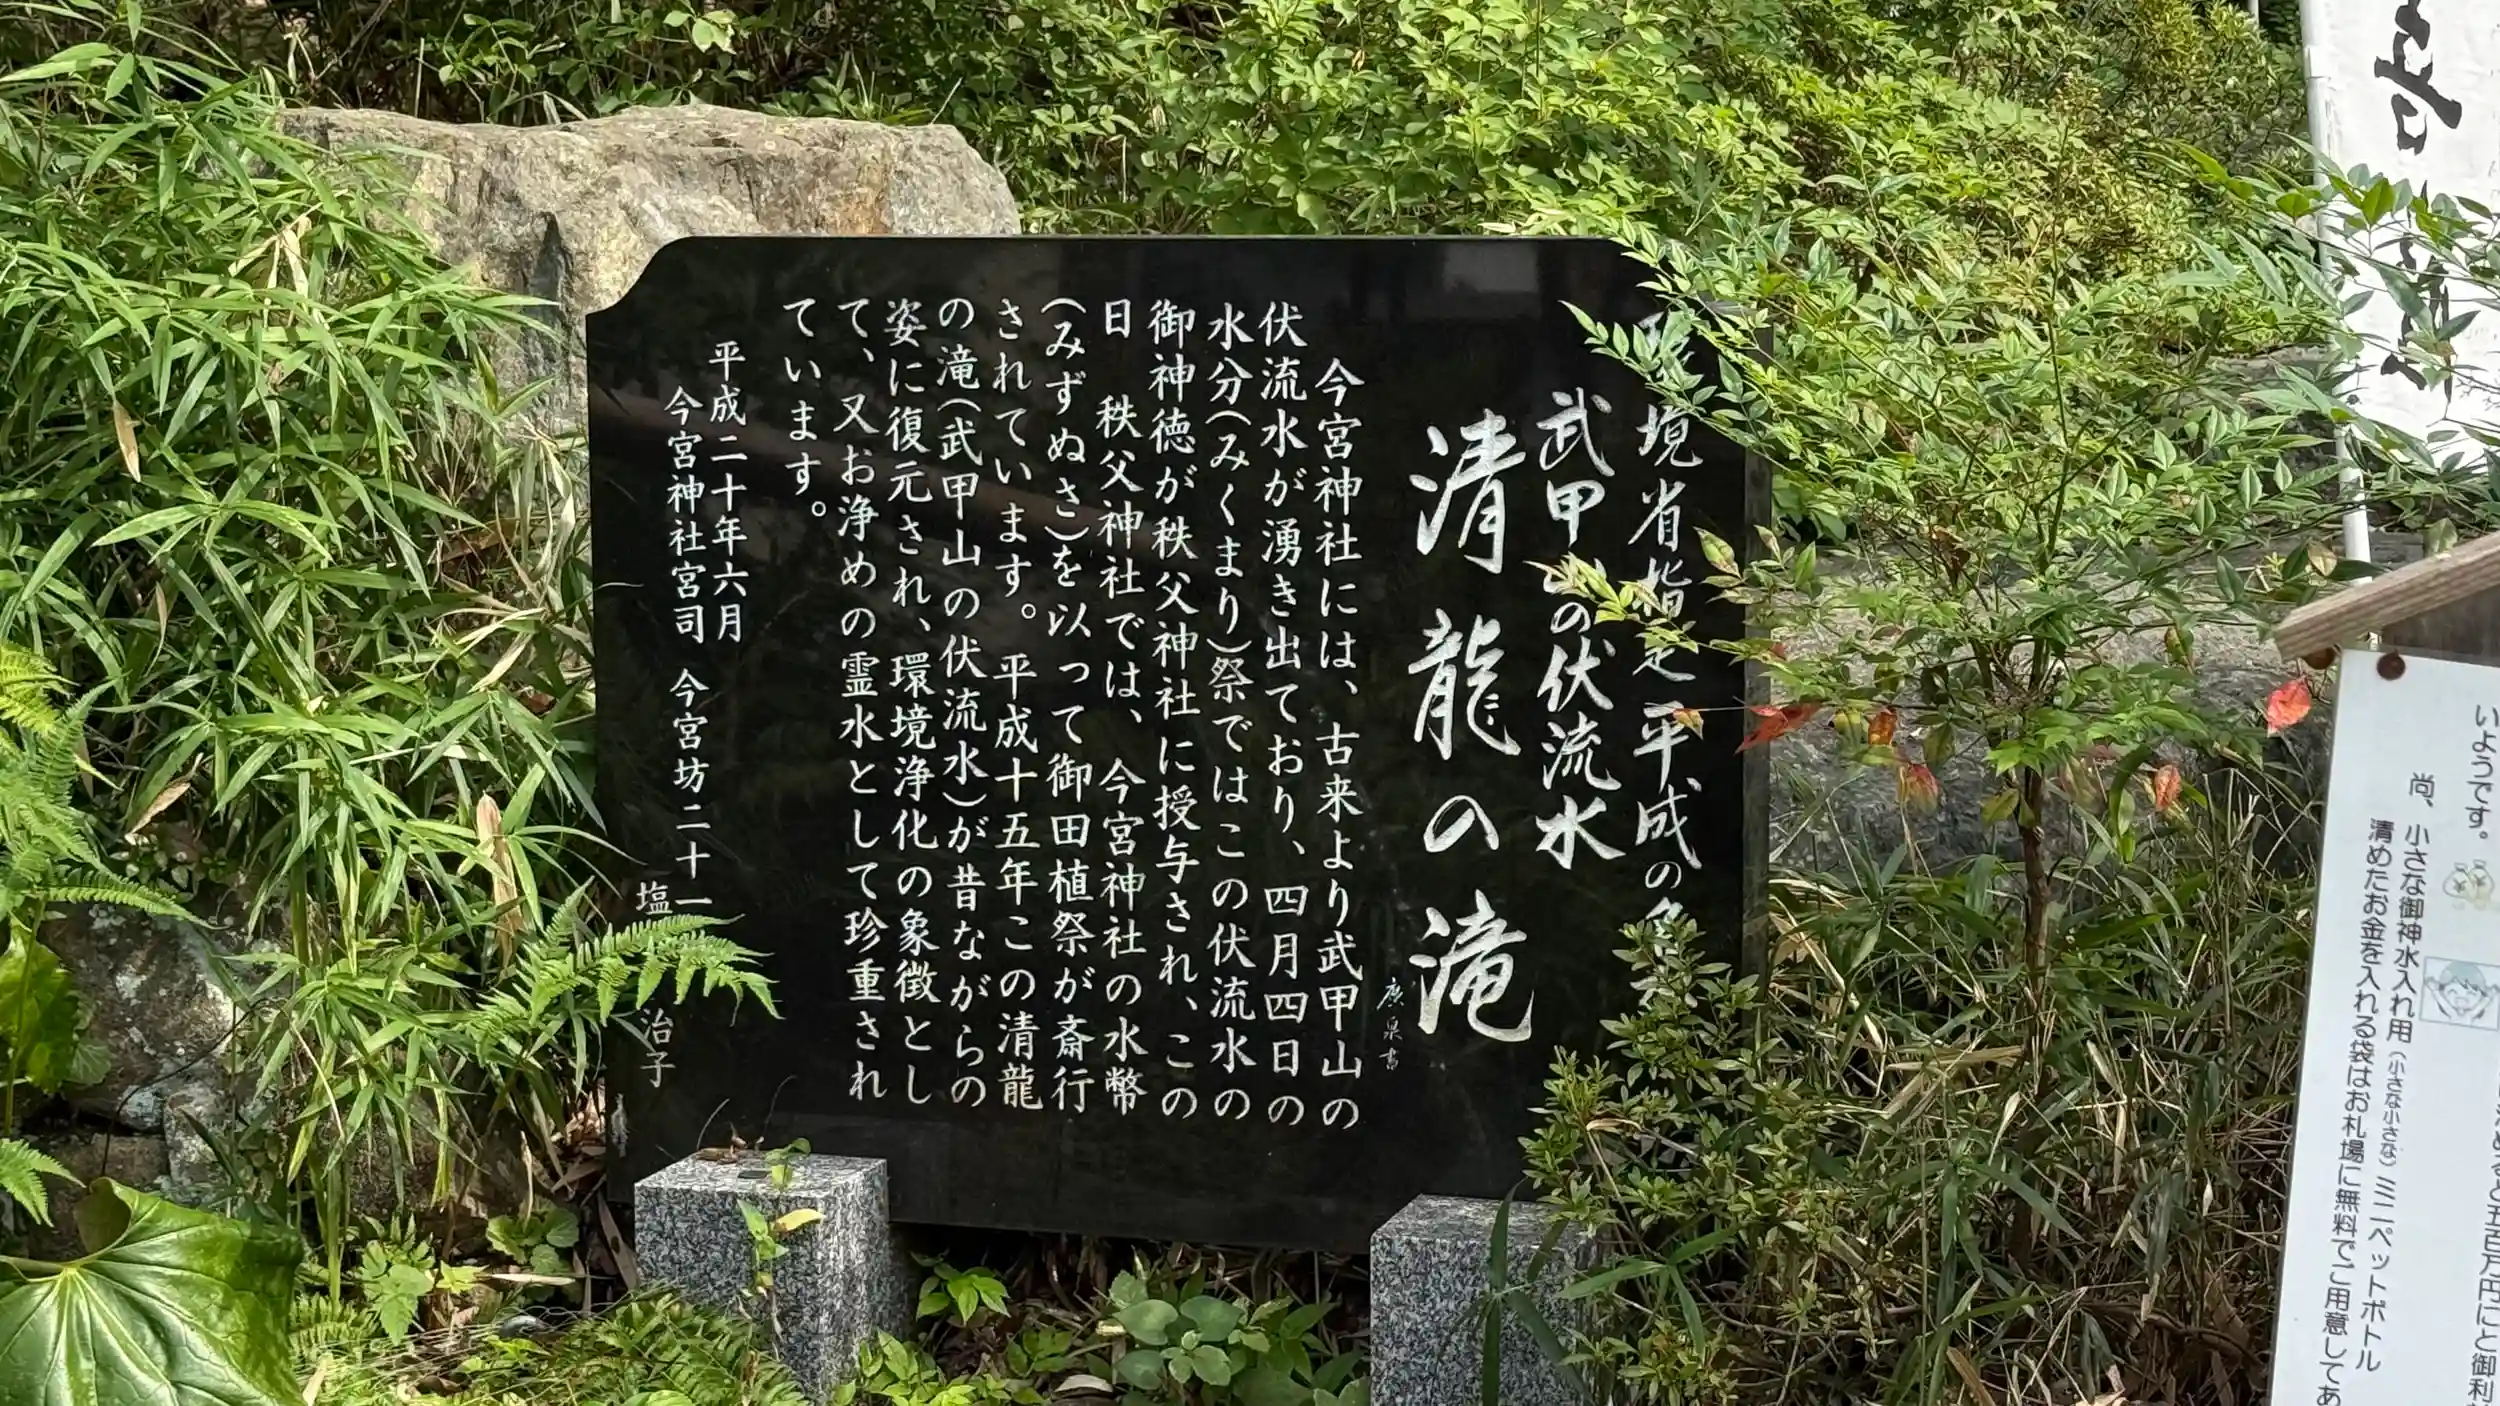 いようです。
尚、小さな御神水入れ用(小さな小さな)ミニペットボトル
清めたお金を入れる袋はお札場に無料でご用意してあ
境省指定平成の名
武甲山の伏流水
清龍の滝
廣泉書
今宮神社には、古来より武甲山の
伏流水が湧き出ており、四月四日の
水分(みくまり)祭ではこの伏流水の
御神徳が秩父神社に授与され、この
日 秩父神社では、今宮神社の水幣
(みずぬさ)を以って御田植祭が斎行
されています。平成十五年この清龍
の滝(武甲山の伏流水)が昔ながらの
姿に復元され、環境浄化の象徴とし
て、又お浄めの霊水として珍重され
ています。
平成二十年六月
今宮神社宮司 今宮坊二十一
塩 治子